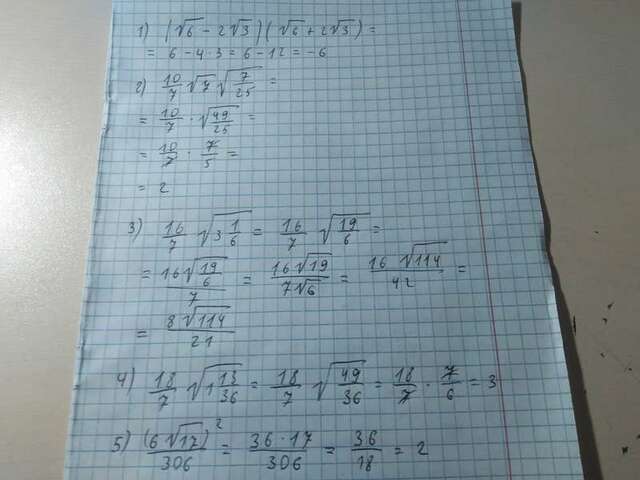 1) (√6 - 2√3)(√6 + 2√3) =
= 6 - 4·3 = 6 - 12 = -6
2) 10/7 √7 √(7/25) =
= 10/7 · √(49/25) =
= 10/7 · 7/5 =
= 2
3) 16/7 √(3 1/6) = 16/7 √(19/6) =
= (16√(19/6))/7 = (16√19)/(7√6) = (16√114)/42 =
= (8√114)/21
4) 18/7 √(1 13/36) = 18/7 √(49/36) = 18/7 · 7/6 = 3
5) (6√17)²/306 = (36·17)/306 = 36/18 = 2